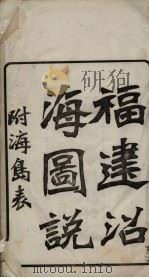 福建沿
海圖說
附海島表